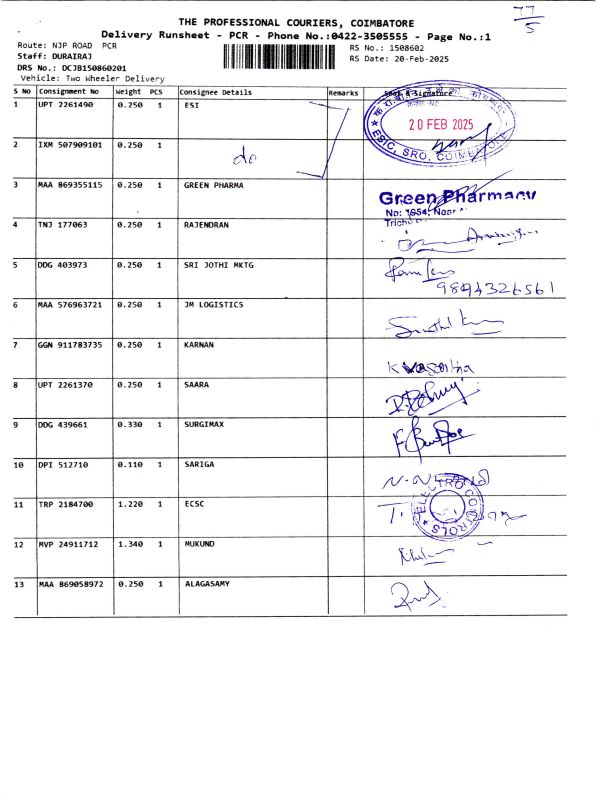 77
5
THE PROFESSIONAL COURIERS, COIMBATORE
Delivery Runsheet - PCR - Phone No.:0422-3505555 - Page No.:1
Route: NJP ROAD PCR
RS No.: 1508602
Staff: DURAIRAJ
RS Date: 20-Feb-2025
DRS No.: DCJB150860201
Vehicle: Two Wheeler Delivery
S NO Consignment No Weight PCS Consignee Details Remarks Seal & Signature
1 UPT 2261490 0.250 1 ESI
20 FEB 2025
ESIC, SRO, COIMBATORE
2 IXM 507909101 0.250 1 do
3 MAA 869355115 0.250 1 GREEN PHARMA
Green Pharmacy
No: 1654, Near
Trichy
4 TNJ 177063 0.250 1 RAJENDRAN
5 DDG 403973 0.250 1 SRI JOTHI MKTG
9894326561
6 MAA 576963721 0.250 1 JM LOGISTICS
7 GGN 911783735 0.250 1 KARNAN
8 UPT 2261370 0.250 1 SAARA
9 DDG 439661 0.330 1 SURGIMAX
10 DPI 512710 0.110 1 SARIGA
11 TRP 2184700 1.220 1 ECSC
ELECTRO CONTROLS
12 MVP 24911712 1.340 1 MUKUND
13 MAA 869058972 0.250 1 ALAGASAMY